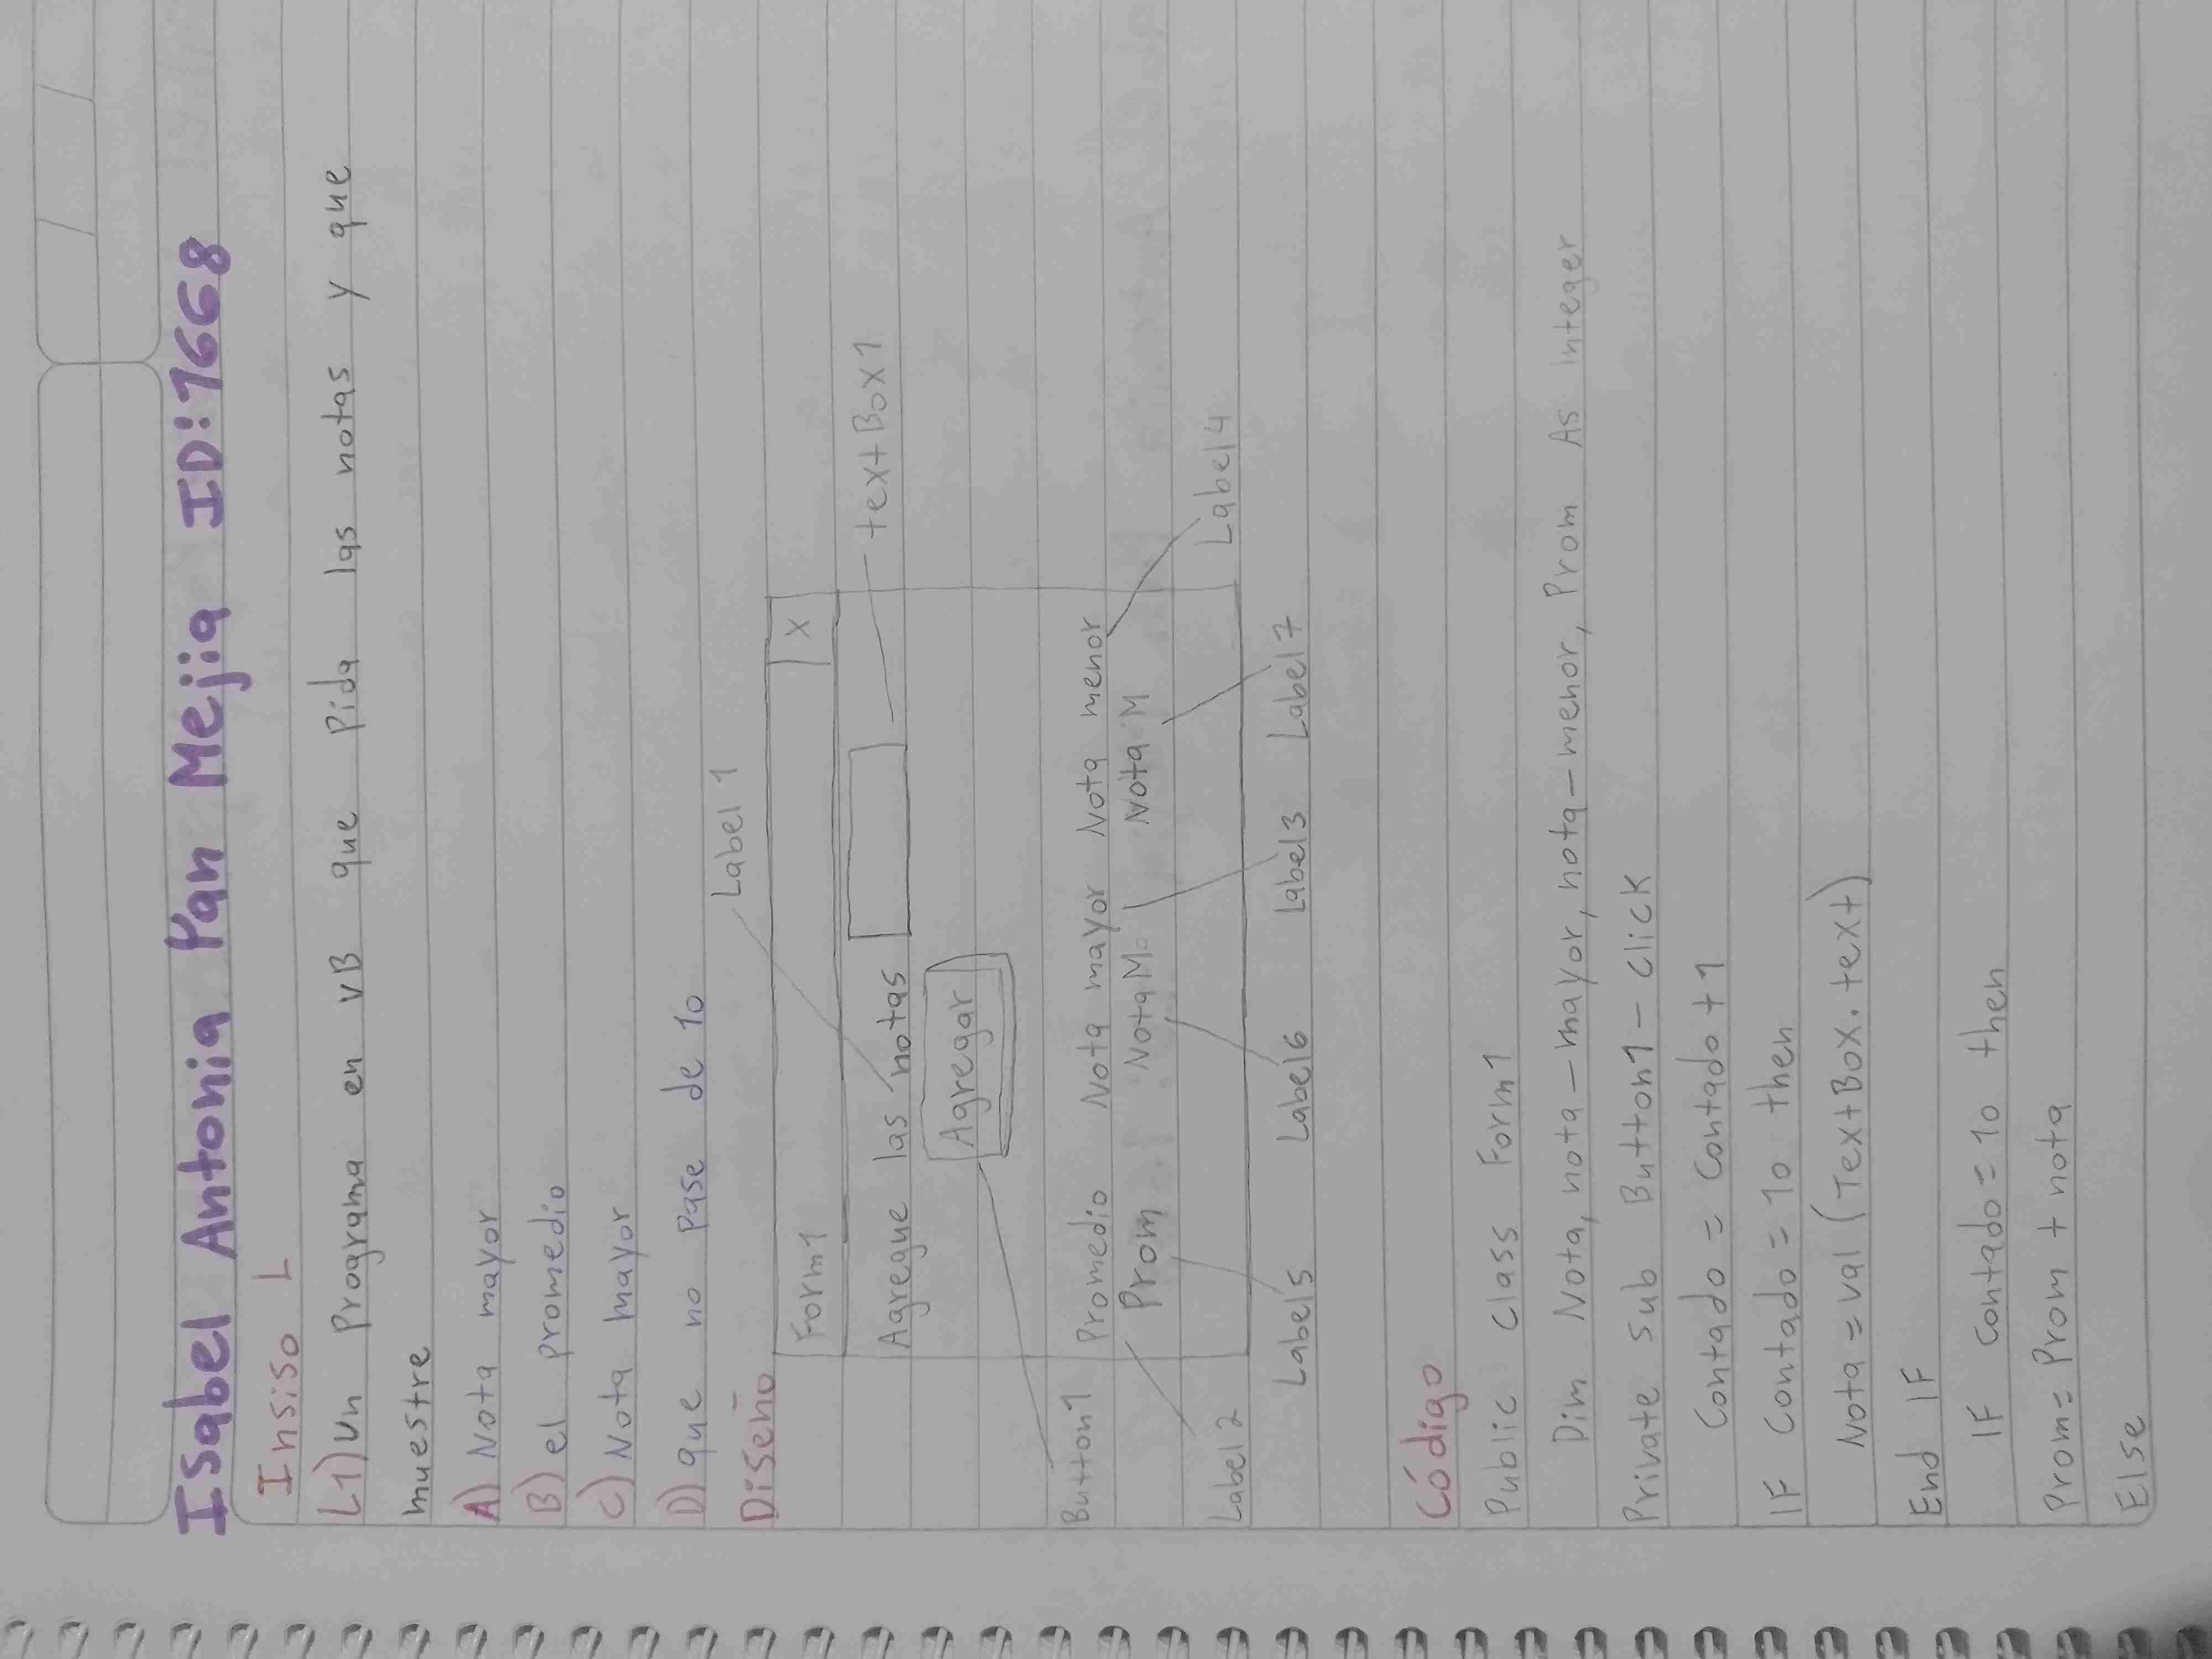 Isabel Antonia Pan Mejia ID:1668
Insiso L
L1) Un Programa en VB que Pida las notas y que
muestre
A) Nota mayor
B) el promedio
C) Nota mayor
D) que no Pase de 10
Diseño
Label 1
Form1 X
Agregue las notas
text Box1
Agregar
Button1
Promedio Nota mayor Nota menor
Prom Nota Ma Nota M
Label 2
Label4
Label5 Label6 Label3 Label7
Código
Public class Form1
Dim Nota, nota-mayor, nota-menor, Prom As integer
Private sub Button1-click
Contado = Contado + 1
IF Contado = 10 then
Nota = val (Text Box. text)
End IF
IF contado = 10 then
Prom = Prom + nota
Else